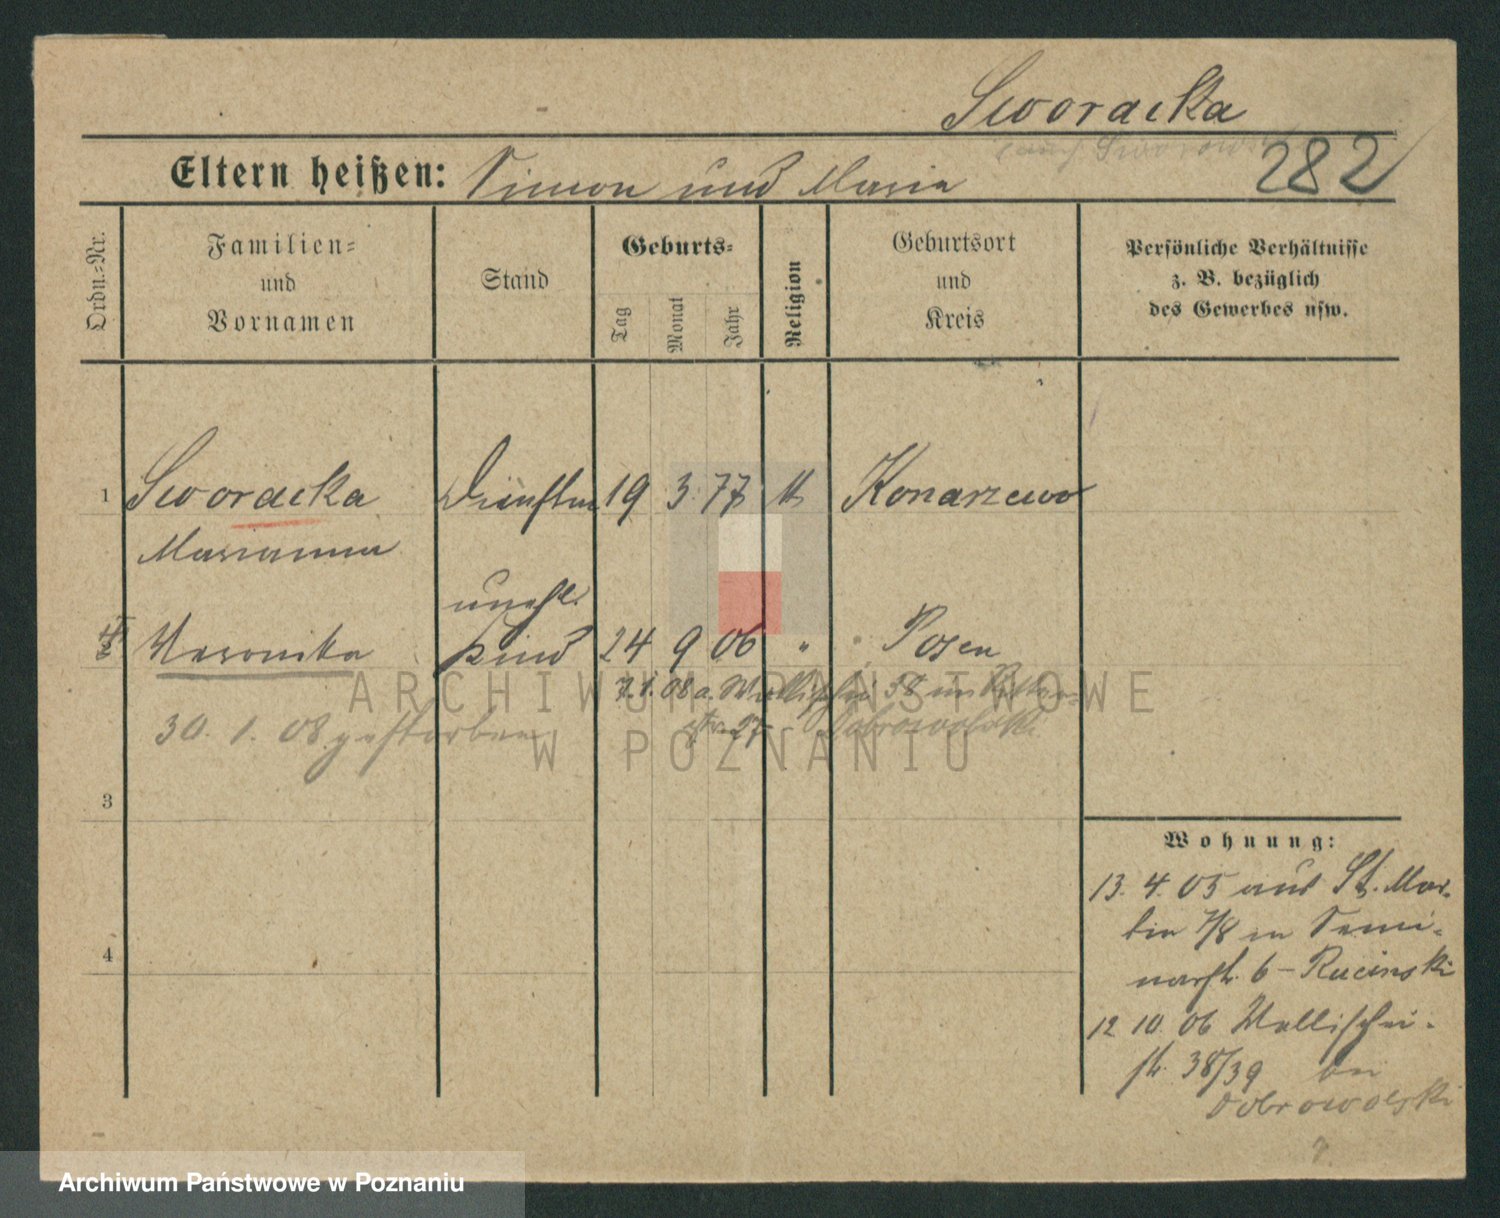 Sworacka
282
Eltern heißen: Simon und Maria
Ordn.=Nr.
Familien=
und
Vornamen
Stand
Geburts=
Tag
Monat
Jahr
Religion
Geburtsort
und
Kreis
Persönliche Verhältnisse
z. B. bezüglich
des Gewerbes usw.
1 Sworacka 19 3 77 Konarzewo
Marianna
unehl.
Veronika Kind 24 9 06 " Posen
7.1.08 a. Wallischei 38 in
30. 1. 08 gestorben 27 Dobrowolski
3
4
Wohnung:
13. 4. 05 aus St. Mar-
tin 7/8 n Semi-
narstr. 6 – Rucinski
12 10. 06 Wallischei-
str. 38/39 bei
Dobrowolski
ARCHIWUM PAŃSTWOWE
W POZNANIU
Archiwum Państwowe w Poznaniu